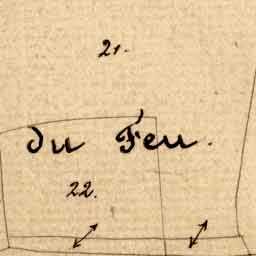 21.
du Feu.
22.